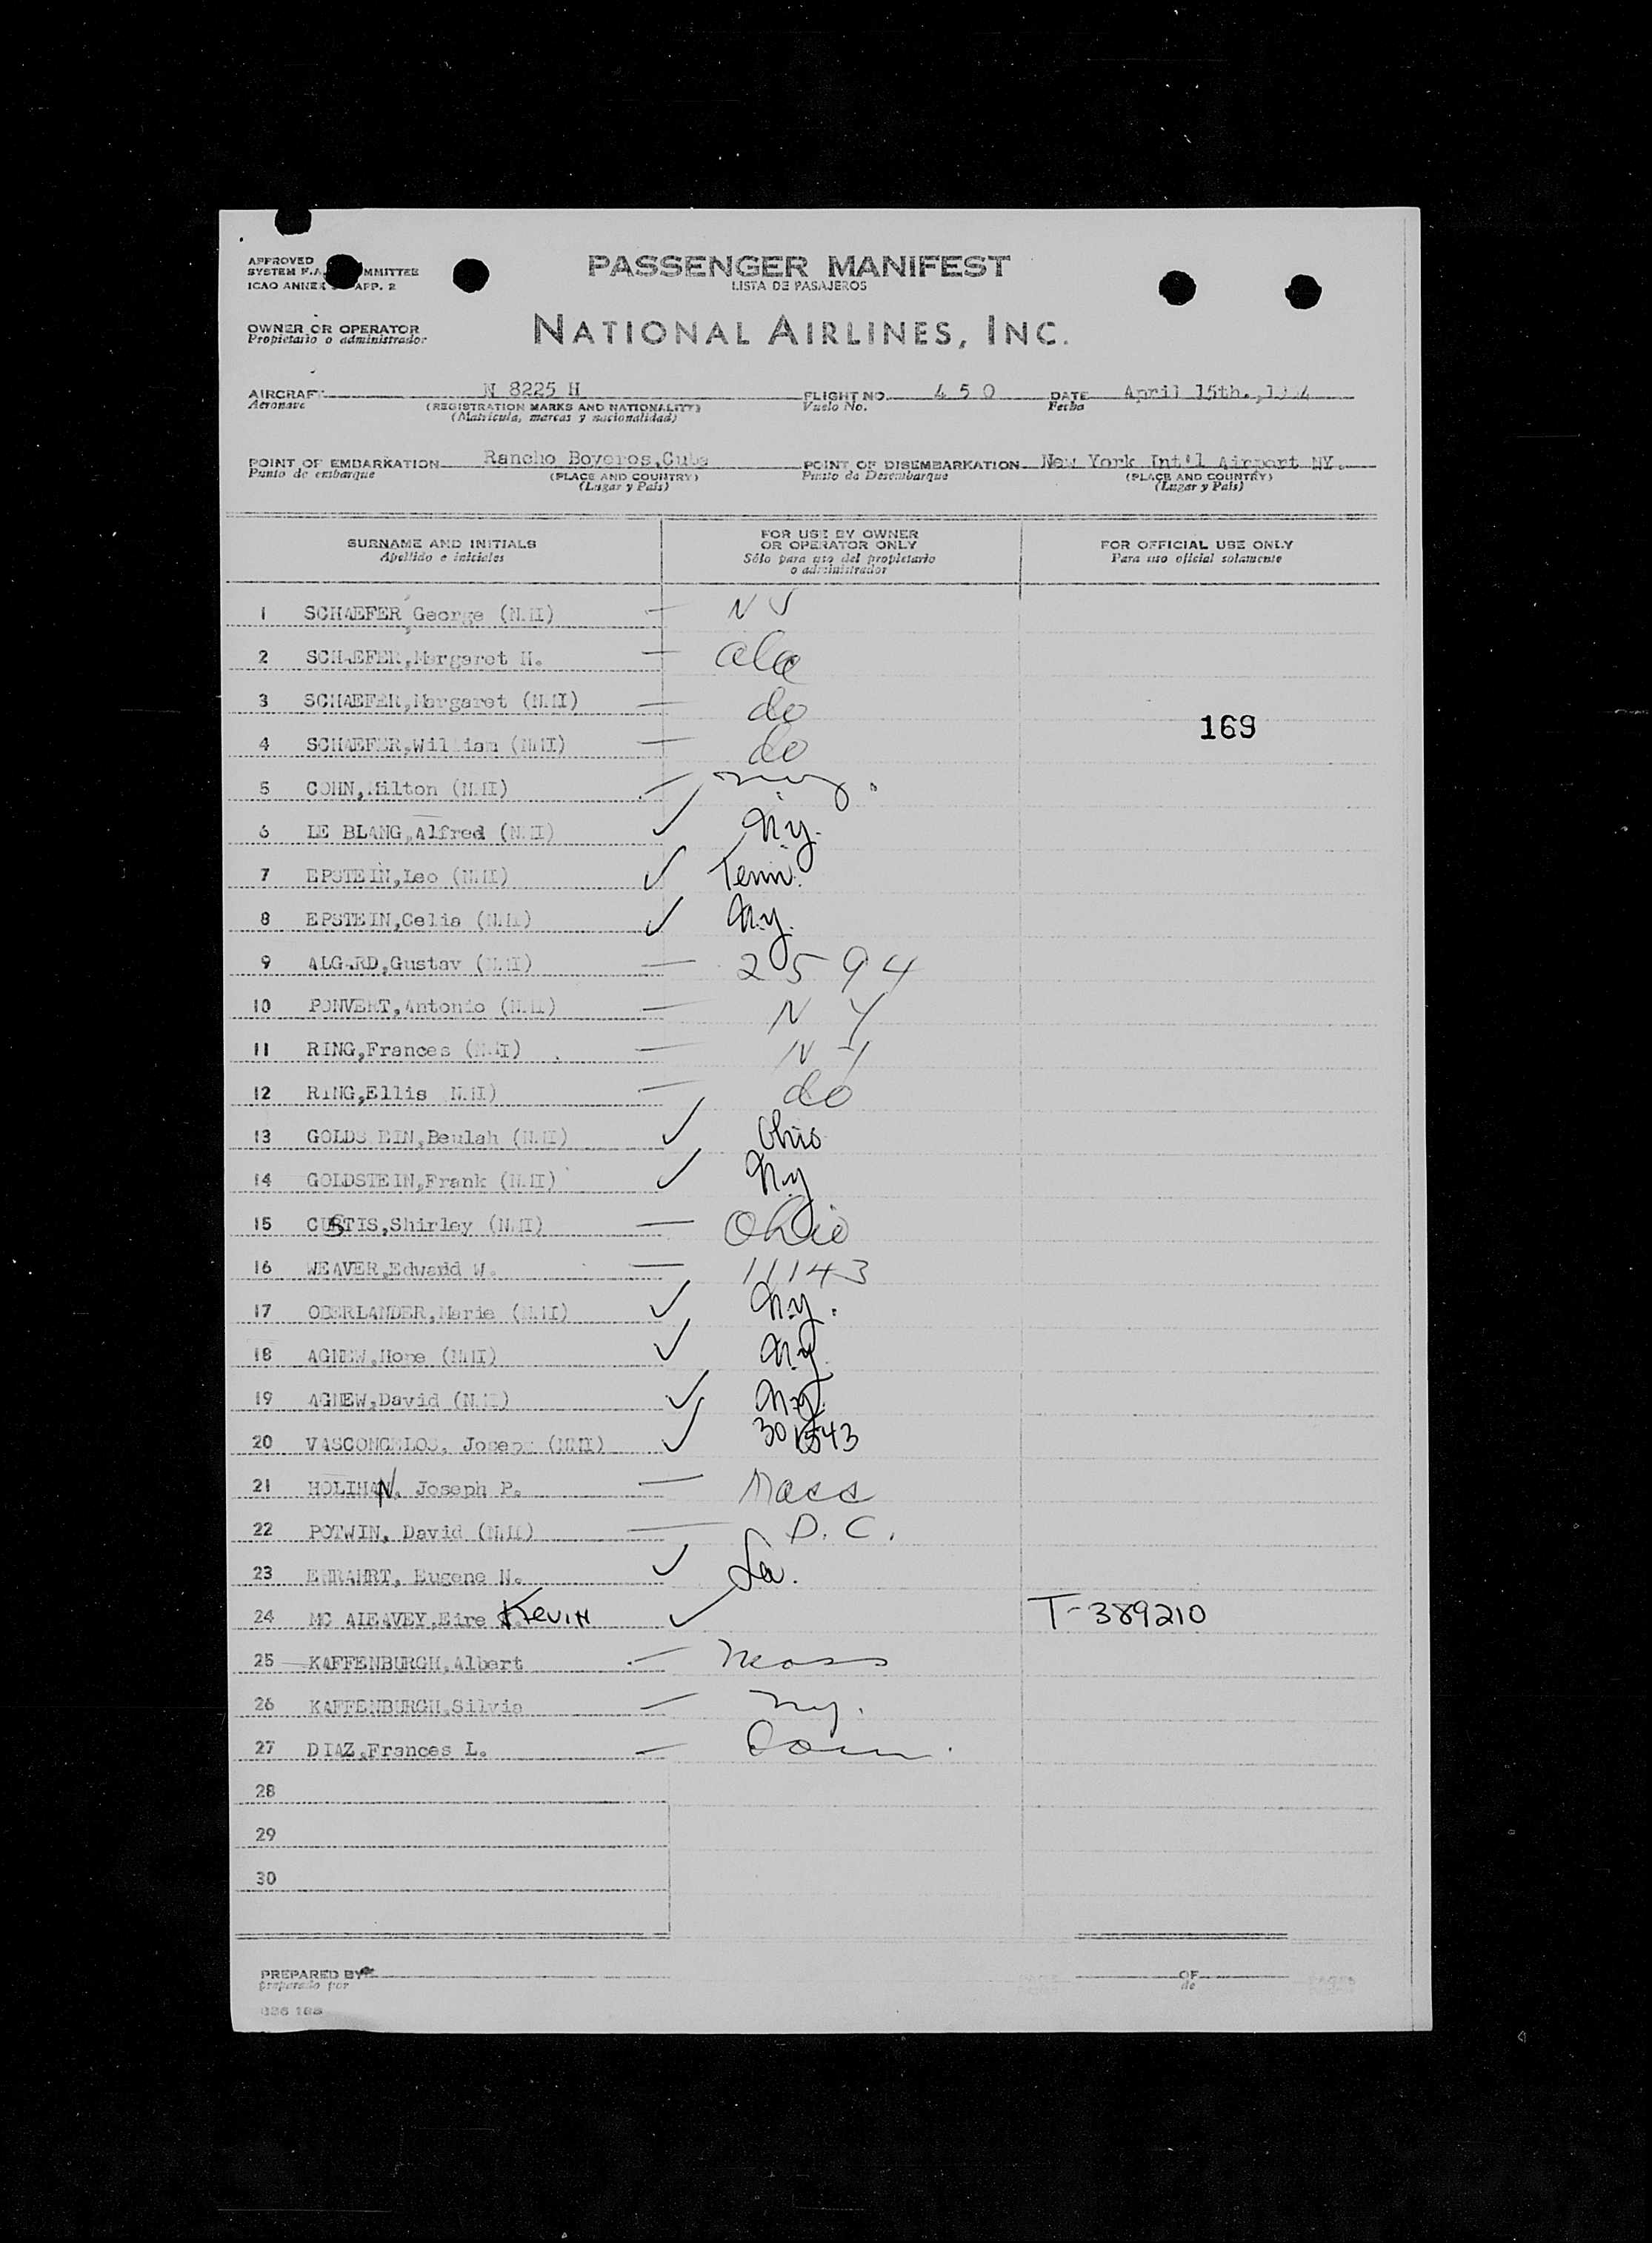 APPROVED
SYSTEM F.A. MMITTEE
ICAO ANNEX APP. 2
PASSENGER MANIFEST
LISTA DE PASAJEROS
OWNER OR OPERATOR
Propietario o administrador
NATIONAL AIRLINES, INC.
AIRCRAFT N 8225 H FLIGHT NO. 4 5 0 DATE April 15th.,
Aeronave (REGISTRATION MARKS AND NATIONALITY) Vuelo No. Fecha
(Matricula, marcas y nacionalidad)
POINT OF EMBARKATION Rancho Boyeros,Cuba POINT OF DISEMBARKATION New York Int'l Airport NY.
Punto de embarque (PLACE AND COUNTRY) Punto de Desembarque (PLACE AND COUNTRY)
(Lugar y País) (Lugar y País)
SURNAME AND INITIALS
Apellido e iniciales
FOR USE BY OWNER
OR OPERATOR ONLY
Sólo para uso del propietario
o administrador
FOR OFFICIAL USE ONLY
Para uso oficial solamente
1 SCHAEFER George (NMI) — N J
2 SCHAEFER,Margaret H. — ala
3 SCHAEFER,Margaret (NMI) — do
169
4 SCHAEFER,William (NMI) — do
5 COHN,Milton (NMI) — ny.
6 LE BLANG,Alfred (NMI) ✓ N.y.
7 EPSTEIN,Leo (NMI) ✓ Tenn.
8 EPSTEIN,Celia (NMI) ✓ N.y.
9 ALGARD,Gustav (NMI) — 2594
10 PONVERT,Antonio (NMI) — N Y
11 RING,Frances (NMI) — N Y
12 RING,Ellis NMI) — do
13 GOLDS EIN,Beulah (NMI) ✓ Ohio
14 GOLDSTEIN,Frank (NMI) ✓ N.y
15 CUSTIS,Shirley (NMI) — Ohio
16 WEAVER,Edward W. — 11143
17 OBERLANDER,Marie (NMI) ✓ N.y.
18 AGNEW,Hope (NMI) ✓ N.y.
19 AGNEW,David (NMI) ✓ N.y.
20 VASCONCELOS, Joseph (NMI) ✓ 301543
21 HOLIHAN, Joseph P. — Mass
22 POTWIN, David (NMI) — D. C.
23 EHRAHRT, Eugene N. ✓ La.
24 MC ALEAVEY,Eire KEVIN ✓ T-389210
25 KAFFENBURGH,Albert — Mass
26 KAFFENBURGH,Silvia — ny.
27 DIAZ,Frances L. — Conn.
28
29
30
PREPARED BY OF
preparado por de